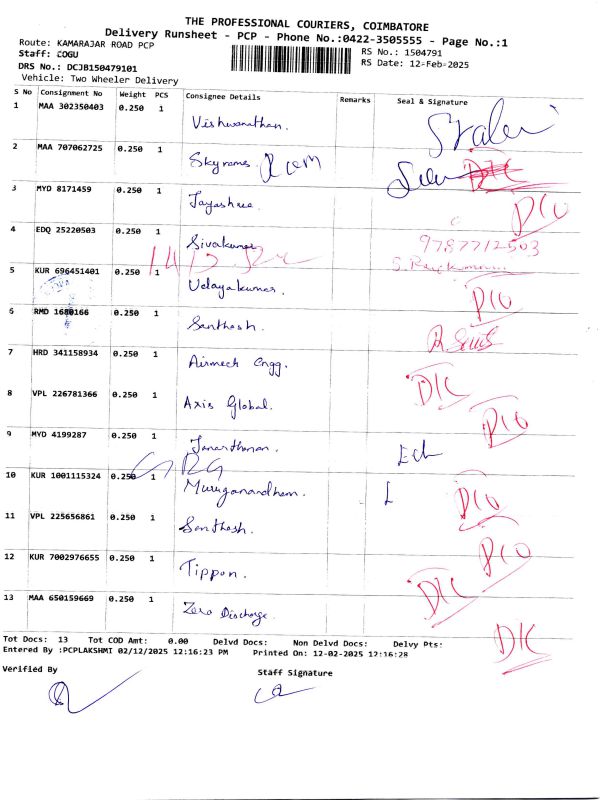 THE PROFESSIONAL COURIERS, COIMBATORE
Delivery Runsheet - PCP - Phone No.:0422-3505555 - Page No.:1
Route: KAMARAJAR ROAD PCP
Staff: COGU
RS No.: 1504791
DRS No.: DCJB150479101
RS Date: 12-Feb-2025
Vehicle: Two Wheeler Delivery
S No Consignment No Weight PCS Consignee Details Remarks Seal & Signature
1 MAA 302350403 0.250 1 Vishwanathan.
2 MAA 707062725 0.250 1 Skyrams
3 MYD 8171459 0.250 1 Jayashree.
4 EDQ 25220503 0.250 1 Sivakumar 9787712503
5 KUR 696451401 0.250 1 Udayakumar.
6 RMD 1680166 0.250 1 Santhosh.
7 HRD 341158934 0.250 1 Airmech Engg.
8 VPL 226781366 0.250 1 Axis Global.
9 MYD 4199287 0.250 1 Janarthanan.
10 KUR 1001115324 0.250 1 Muruganandham.
11 VPL 225656861 0.250 1 Santhosh.
12 KUR 7002976655 0.250 1 Tippon.
13 MAA 650159669 0.250 1 Zero Discharge.
Tot Docs: 13 Tot COD Amt: 0.00 Delvd Docs: Non Delvd Docs: Delvy Pts:
Entered By :PCPLAKSHMI 02/12/2025 12:16:23 PM Printed On: 12-02-2025 12:16:28
Verified By
Staff Signature